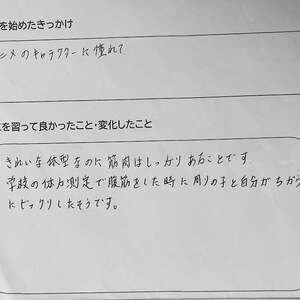 を始めたきっかけ
ニメのキャラクターに憧れて
を習って良かったこと・変化したこと
きれいな体型なのに筋肉はしっかりあることです
学校の体力測定で腹筋をした時に周りの子と自分がちがう
にビックリしたそうです。